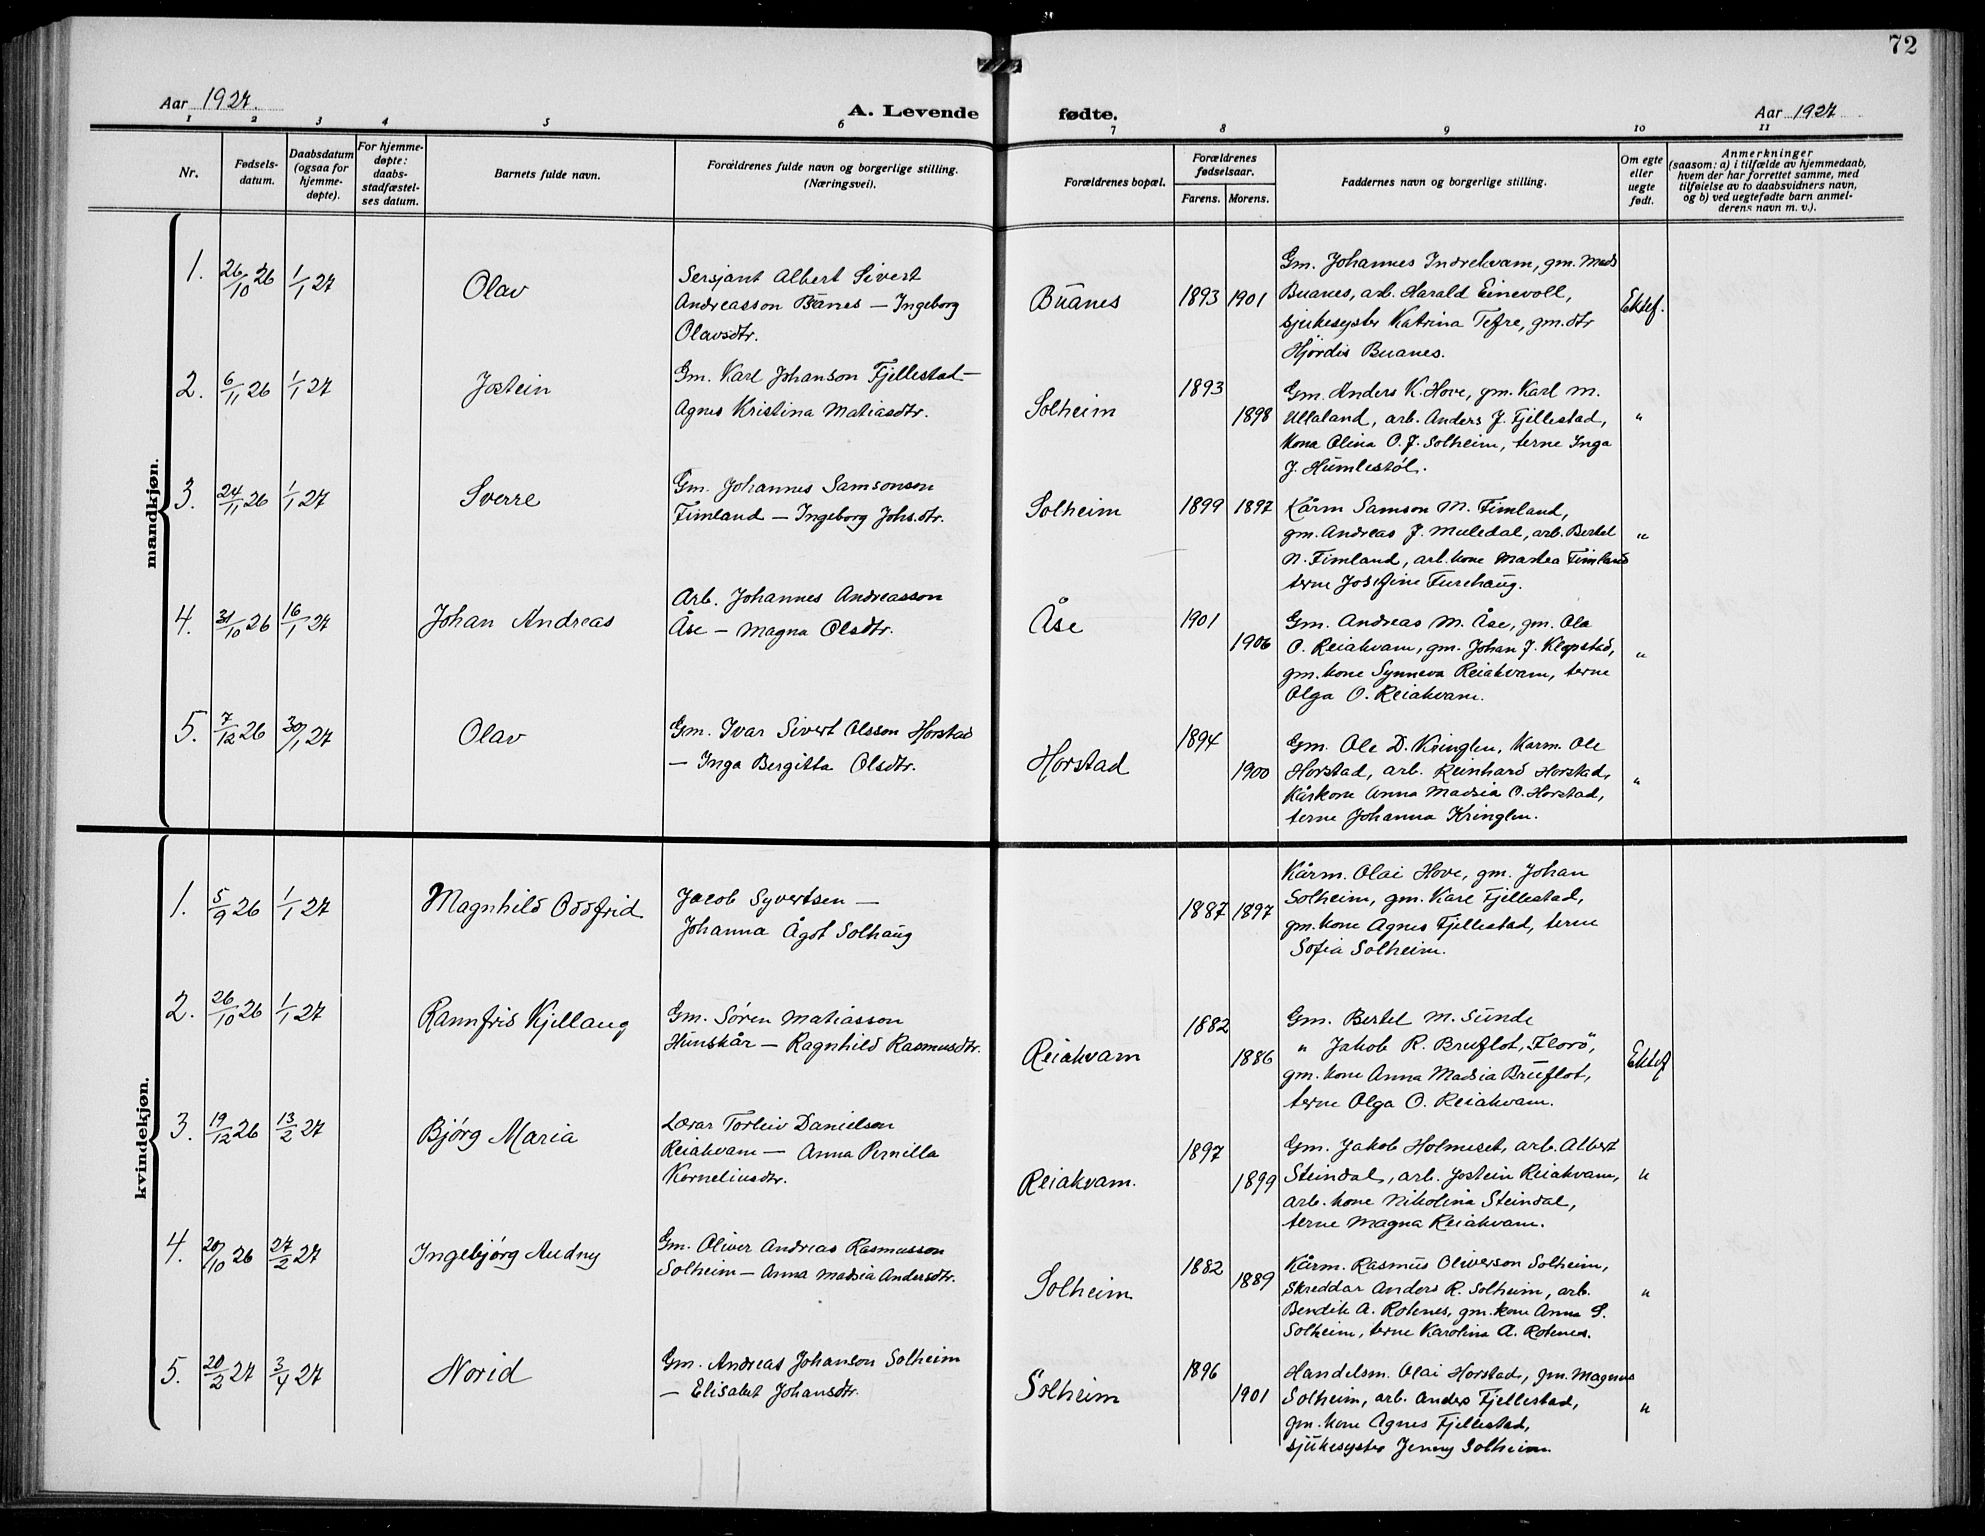 72
Aar 1927.
A. Levende fødte.
Aar 1927
1 2 3 4 5 6 7 8 9 10 11
Nr.
Fødsels-
datum.
Daabsdatum
(ogsaa for
hjemme-
døpte).
For hjemme-
døpte:
daabs-
stadfæstel-
ses datum.
Barnets fulde navn.
Forældrenes fulde navn og borgerlige stilling.
(Næringsvei).
Forældrenes bopæl.
Forældrenes
fødselsaar.
Farens. Morens.
Faddernes navn og borgerlige stilling.
Om egte
eller
uegte
født.
Anmerkninger
(saasom: a) i tilfælde av hjemmedaab,
hvem der har forrettet samme, med
tilføielse av to daabsvidners navn,
og b) ved uegtefødte barn anmel-
derens navn m. v.).
mandkjøn.
1. 26/10 26 1/1 27
Olav
Sersjant Albert Sivert
Andreasson Buanes — Ingeborg
Olavsdtr.
Buanes
1893 1901
Gm. Johannes Indrekvam, gm. Mads
Buanes, arb. Harald Einevoll,
sjukesyster Katrina Tefre, gm.dtr
Hjördis Buanes.
Ektef.
2. 6/11 26 1/1 27
Jostein
Gm. Karl Johanson Fjellestad —
Agnes Kristina Matiasdtr.
Solheim
1893
1898
Gm. Anders K. Hove, gm. Karl M.
Ullaland, arb. Anders J. Fjellestad,
Kona Olina O. J. Solheim, terne Inga
J. Humlestøl.
"
3. 24/11 26 1/1 27
Sverre
Gm. Johannes Samsonson
Timland — Ingeborg Johs.dtr.
Solheim
1899 1897
Kårm Samson M. Timland,
gm. Andreas J. Muledal, arb. Bertel
N. Timland, arb. kone Martea Timland
terne Josefine Furehaug.
"
4. 31/10 26 16/1 27
Johan Andreas
Arb. Johannes Andreasson
Åse — Magna Olsdtr.
Åse
1901
1906
Gm. Andreas M. Åse, gm. Ole
O. Reiakvam, gm. Johan J. Klopstad,
gm. kone Synneva Reiakvam, terne
Olga O. Reiakvam.
"
5. 7/12 26 30/1 27
Olav
Gm. Ivar Sivert Olsson Horstad
— Inga Bergitta Olsdtr.
Horstad
1894
1900
Gm. Ole D. Kringlen, Karm. Ole
Horstad, arb. Reinhard Horstad,
Kårkone Anna Madsia O. Horstad,
terne Johanna Kringlen.
"
kvindekjøn.
1. 5/9 26 1/1 27
Magnhild Oddfrid
Jacob Syvertsen —
Johanna Ågot Solhaug
1887 1897
Kårm. Olai Hove, gm. Johan
Solheim, gm. Karl Fjellestad,
gm. kone Agnes Fjellestad, terne
Sofia Solheim.
2. 26/10 26 1/1 27
Rannfrid Kjellaug
Gm. Sören Matiasson
Hunskår — Ragnhild Rasmusdtr.
Reiakvam
1882
1886
Gm. Bertel M. Sunde
" Jakob R. Bruflot, Florö,
gm. kone Anna Madsia Bruflot,
terne Olga O. Reiakvam.
Ektef
3. 19/12 26 13/2 27
Bjørg Maria
Lærar Torleiv Danielson
Reiakvam — Anna Pernilla
Korneliusdtr.
Reiakvam.
1897
1899
Gm. Jakob Holmeset, arb. Albert
Steindal, arb. Jostein Reiakvam,
arb. kone Nikolina Steindal,
terne Magna Reiakvam.
"
4. 20/10 26 27/2 27
Ingebjørg Audny
Gm. Oliver Andreas Rasmusson
Solheim — Anna Madsia Andersdtr.
Solheim
1882
1889
Kårm. Rasmus Oliverson Solheim,
Skreddar Anders R. Solheim, arb.
Bendik A. Rotenes, gm. kone Anna S.
Solheim, terne Karolina A. Rotenes.
"
5. 20/2 27 3/4 27
Norid
Gm. Andreas Johanson Solheim
— Elisabet Johansdtr.
Solheim
1896
1901
Handelsm. Olai Horstad, gm. Magnus
Solheim, arb. Anders Fjellestad,
gm. kone Agnes Fjellestad,
sjukesyster Jenny Solheim.
"